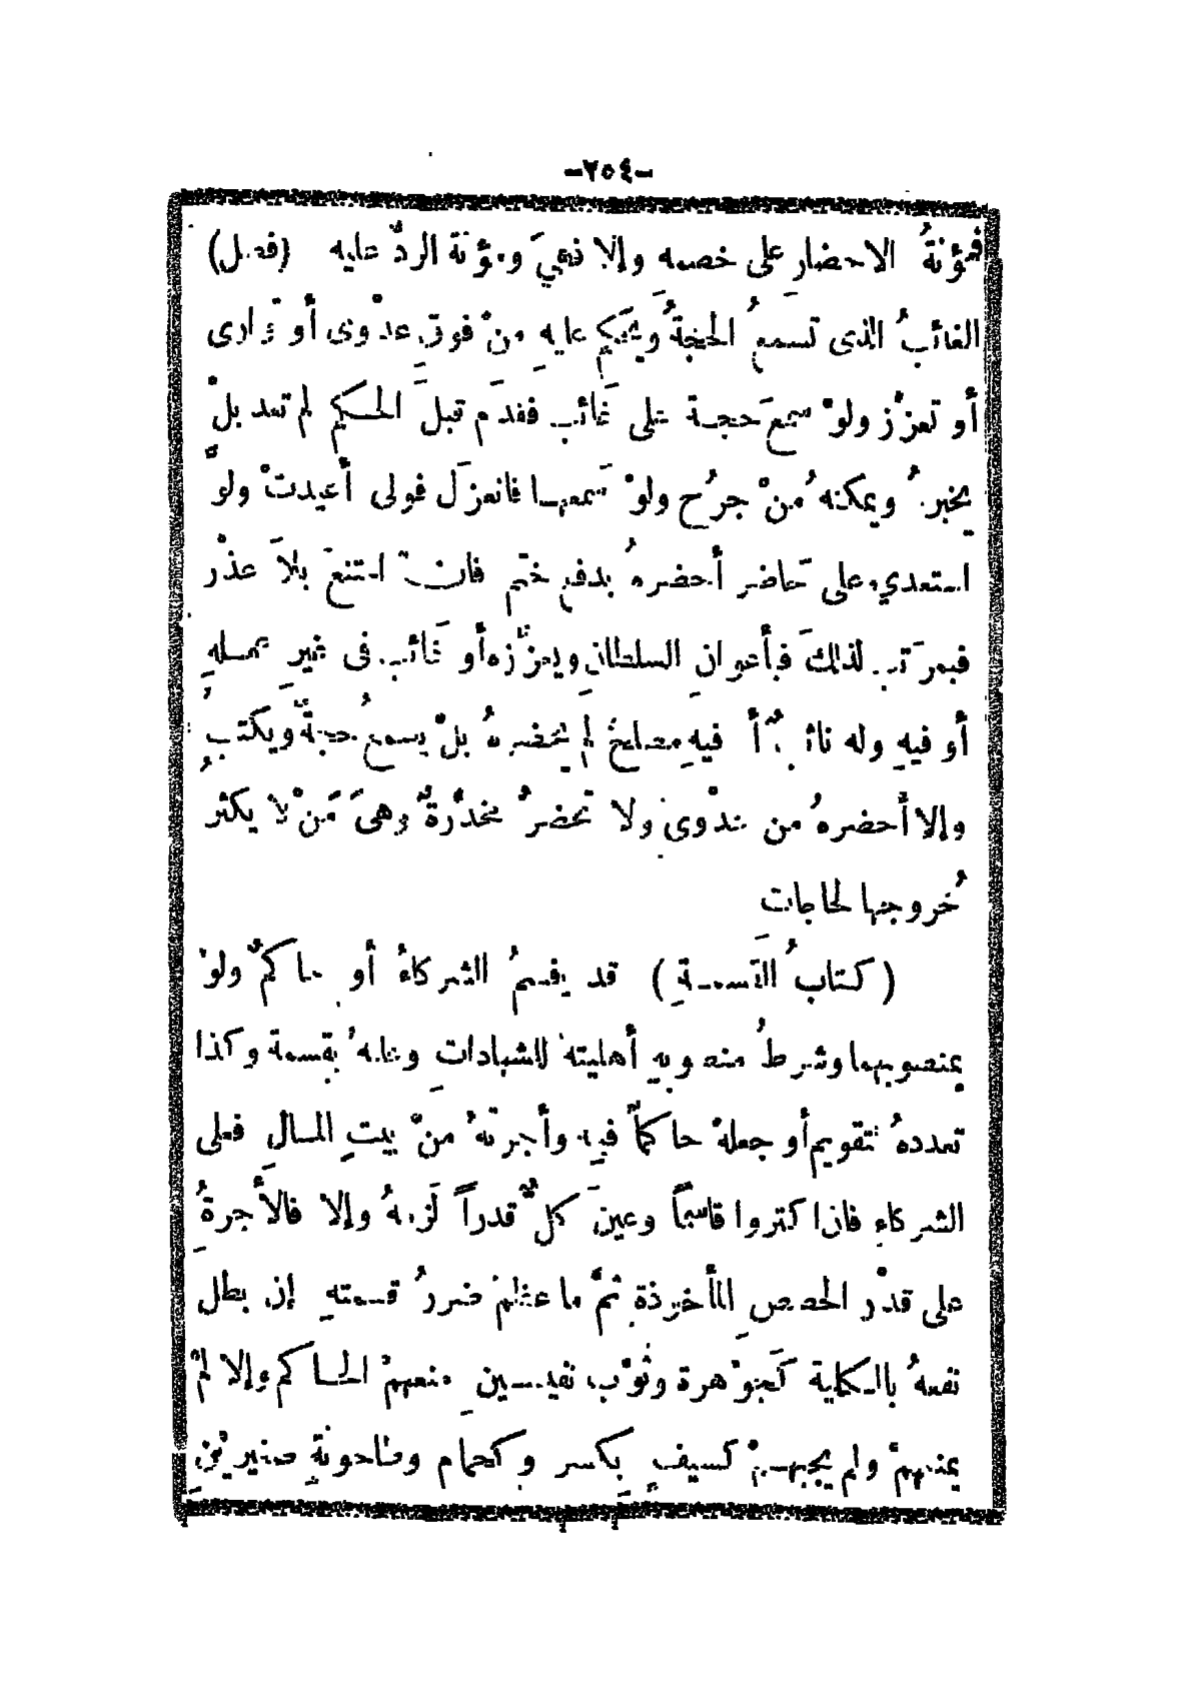 -٢٥٤-
فمؤنةُ الاحضار على خصمه وإلا فهيَ ومؤنة الردّ عليه (فصل)
الغائبُ الذى تسمعُ الحجةُ ويحكم عليهِ منْ فوقَ عدْوى أو توارى
أو تعزّز ولوْ سمعَ حجة على غائب فقدم قبلَ الحكم لم تعد بلْ
يخبره ويمكنهُ منْ جرح ولوْ سمعها فانعزلَ فولى أعيدتْ ولوْ
استعدي على حاضر أحضرهُ بدفع ختم فان امتنعَ بلاَ عذْر
فبمرتب لذلكَ فبأعوانِ السلطانِ ويعزّره أو غائب فى غير عملهِ
أو فيهِ وله نائبٌ أو فيهِ مصلحٌ لم يحضرهُ بلْ يسمعُ حجةً ويكتبُ
وإلا أحضرهُ من عدْوى ولا تحضرُ مخدّرةٌ وهىَ مَنْ لا يكثر
خروجها لحاجات
(كتابُ القسمةِ) قد يقسمُ الشركاءُ أو حاكمٌ ولوْ
بمنصوبهما وشرطُ منصوبهِ أهليتهُ للشهاداتِ وعلمهُ بقسمة وكذا
تعددهُ لتقويم أو جعلهُ حاكماً فيهِ وأجرتهُ منْ بيتِ المالِ فعلى
الشركاءِ فان اكتروا قاسماً وعينَ كلٌّ قدراً لزمهُ وإلا فالأجرةُ
على قدْر الحصصِ المأخوذة ثمَّ ما عظمَ ضررُ قسمتهِ إن بطل
نفعهُ بالكلية كَجوْهرة وثوْب نفيسينِ منعهمْ الحاكم وإلا لمْ
يمنعهمْ ولم يجبهمْ كسيفٍ يكسر وكحمام وطاحونةٍ صغيريْنِ